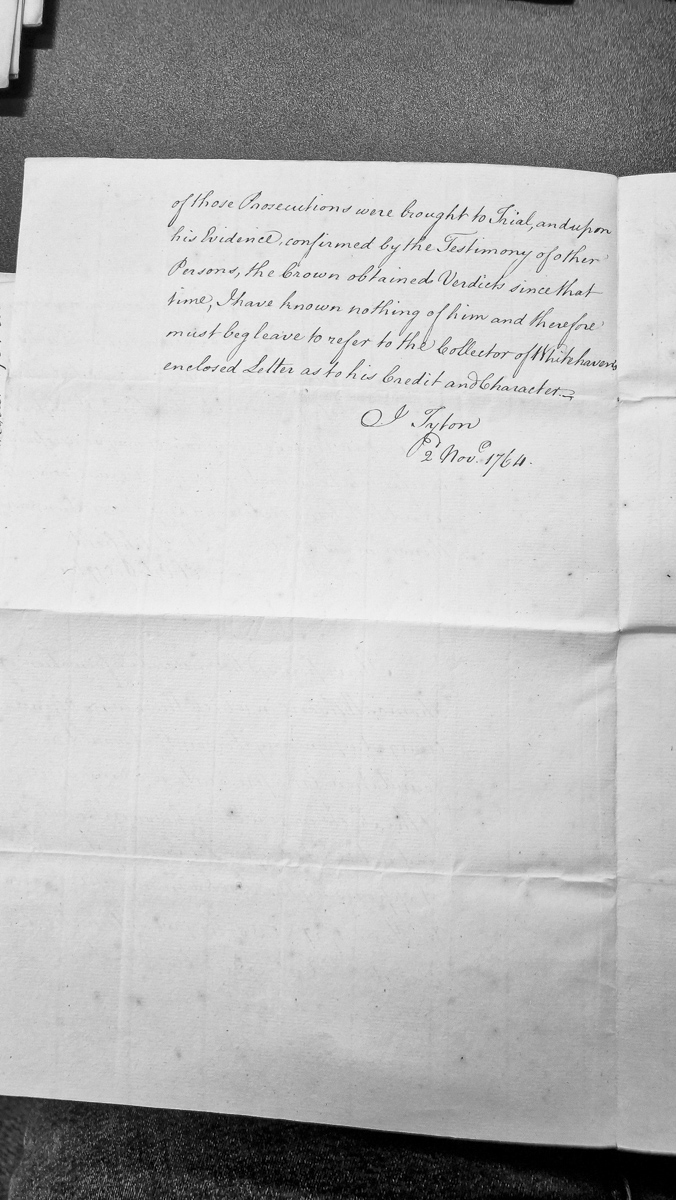 of those Prosecutions were brought to Trial, and upon
his Evidence, confirmed by the Testimony of other
Persons, the Crown obtained Verdicts since that
time, I have known nothing of him and therefore
must beg leave to refer to the Collector of Whitehaven's
enclosed Letter as to his Credit and Character
J Tyton
2d Novr. 1764.